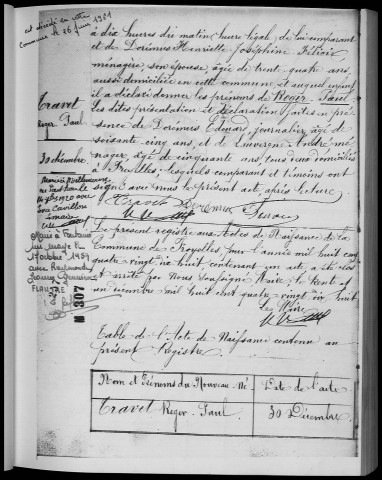 est décédé en cette
commune le 26 juin 1981
à dix heures du matin heure légal, de lui comparant
et de Dorémus Henriette Joséphine
ménagère, son épouse, âgée de trente quatre ans,
aussi domiciliée en cette commune, et auquel enfant
il a déclaré donner les prénoms de Roger-Paul
Les dites présentation et déclaration faites en pré-
sence de Dorémus Edouard, journalier, âgé de
soixante cinq ans, et de André mé-
nager, âgé de cinquante ans, tous deux domiciliés
à Froyelles, lesquels comparant et témoins ont
signé avec nous le présent acte, après lecture
Travet
Roger Paul
30 décembre
Travet Dorémus
Le présent registre aux actes de Naissance de la
Commune de Froyelles pour l'année mil huit cent
quatre vingt dix huit contenant un acte, a été clos
et arrêté par Nous soussigné Maire, le trente et
un décembre mil huit cent quatre vingt dix huit
Le Maire
17 octobre 1959
avec Raymonde
M 307
Table de l'Acte de Naissance contenu au
présent Registre
Nom et Prénoms du Nouveau-Né
Date de l'acte
Travet Roger-Paul
30 Décembre